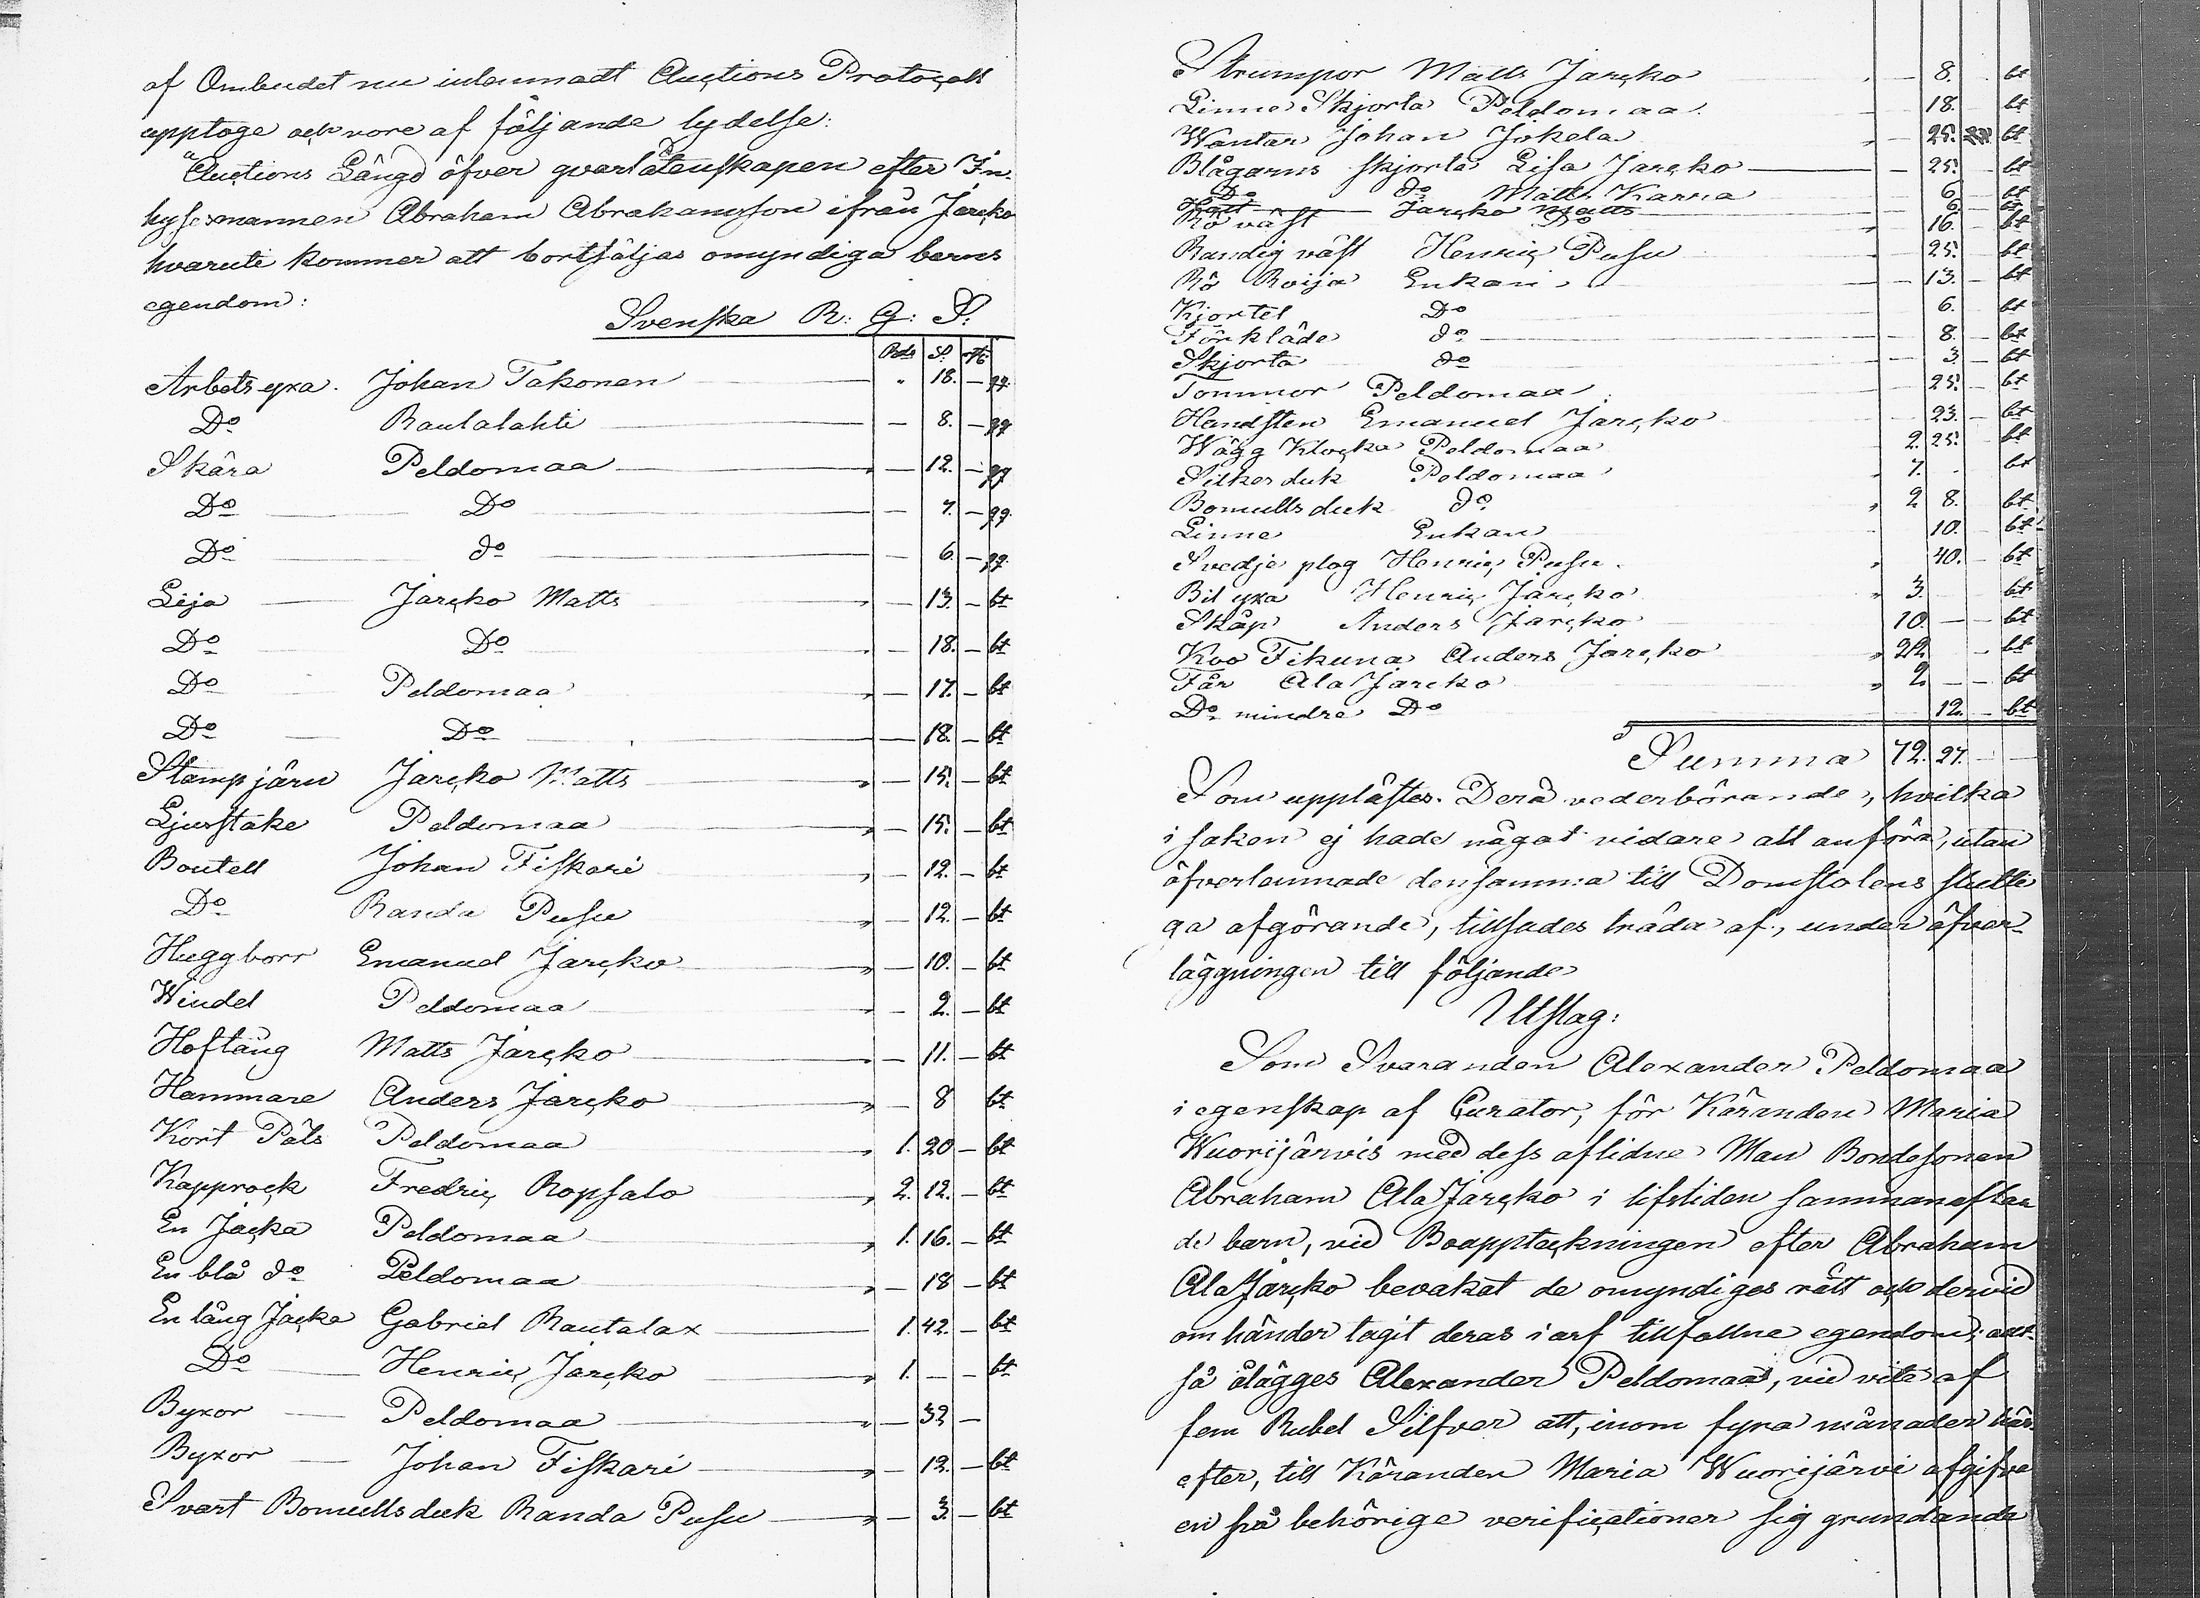 af Ombudet nu inlemnadt Auctions Protocoll
upptoge och vore af följande lydelse:
"Auctions Längd öfver qvarlåtenskapen efter In-
hysesmannen Abraham Abrahamsson ifrån Jaręko
hvaruti kommer att bortsäljas omyndiga barns
egendom:
Svenska R: G: S:
Rdr S. rst:
Arbets yxa. Johan Takonen " 18. — gg.
Do Rautalahti — 8. — gg
Skära Peldomaa — 12. — gg
Do Do — 7. — gg.
Do do — 6 — gg.
Lija Jarcko Matts — 13. — bt
Do Do — 18. — bt
Do Peldomaa — 17. — bt
Do Do — 18. — bt
Stamp järn Jarcko Matts — 15. — bt
Ljusstake Peldomaa — 15. — bt
Boutell Johan Fiskari — 12. — bt
Do Randa Pusu — 12. — bt
Huggborr Emanuel Jarcko — 10. — bt
Windel Peldomaa — 2. — bt
Hoftång Matts Jarcko — 11. — bt
Hammare Anders Jarcko — 8 bt
Kort Päls Peldomaa 1. 20 — bt
Kapprock Fredric Ropsalo 2. 12. — bt
En Jacka Peldomaa 1. 16. — bt
En blå do Peldomaa — 18 — bt
En lång Jacka Gabriel Rautalax 1. 42. — bt
Do Henric Jarcko 1. — — bt
Byxor Peldomaa — 32 —
Byxor Johan Fiskari — 12. — bt
Svart Bomullsduk Randa Pusu — 3. — bt
Strumpor Matts Jarcko — 8. bt
Linne Skjorta Peldomaa 18. bt
Wantar Johan Jokela — 25. bt
Blågarns skjorta Lisa Jarcko — 25. bt
Do do Matts Karra 6 bt
Hatt Jarcko Matts 6 bt
Rö väst Do 16. bt
Randig väst Henric Pusu 25. bt
Rö Roija Enkan 13. bt
Kjortel Do 6. bt
Förkläde do — 8. — bt
Skjorta do — 3. — bt
Tommor Peldomaa 25. — bt
Handsten Emanuel Jarcko 23. — bt
Wägg Klocka Peldomaa 2. 25. bt
Silkesduk Peldomaa 7. bt
Bomullsduk do 2 8. bt
Linne Enkan 10. — bt
Svedje plog Henric Pusu. 40. — bt
Bil yxa Henric Jarcko 3. bt
Skåp Anders Jarcko 10. — — bt
Koo Tikuna Anders Jarcko 22 — bt
Får Ala Jarcko 2. — — bt
Do mindre Do 12. — bt
Summa 72. 27. — —
Som upplästes. Derå vederbörande, hvilka
i saken ej hade något vidare att anföra, utan
öfverlemnade densamma till Domstolens slutli
ga afgörande, tillsades träda af, under öfver-
läggningen till följande
Utslag:
Som Svaranden Alexander Peldomaa
i egenskap af Curator, för Käranden Maria
Wuorijärvis med dess aflidne Man Bondesonen
Abraham Ala Jarcko i lifstiden sammanaflan
de barn, vid Bouppteckningen efter Abraham
Ala Jarcko bevakat de omyndiges rätt och dervid
om händer tagit deras i arf tillfallne egendom; alt-
så ålägges Alexander Peldomaa, vid vite af
fem Rubel Silfver att, inom fyra månader här-
efter, till Käranden Maria Wuorijärvi afgifva
en på behörige verificationer sig grundande